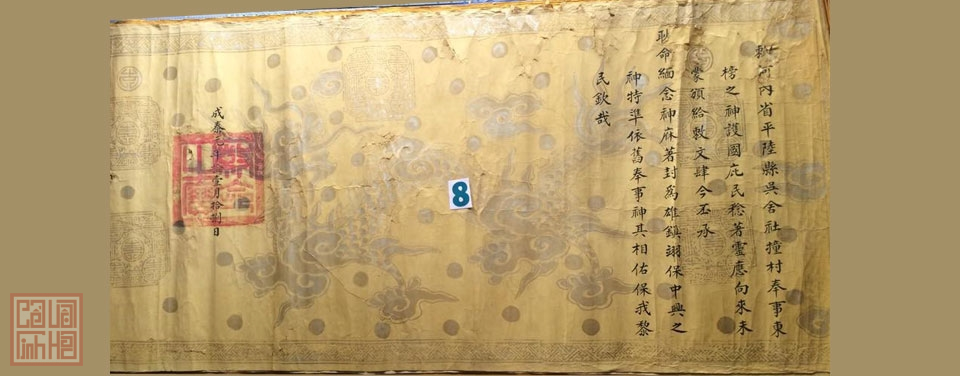 敕河內省平陸縣吳舍社撞村奉事東
榜之神護國庇民稔著靈應向來未
蒙頒給敕文肆今丕承
耿命緬念神庥著封為雄鎮翊保中興之
神特準依舊奉事神其相佑保我黎
民欽哉
成泰元年壹月拾捌日
8
Cổ Vật
Tinh Hoa